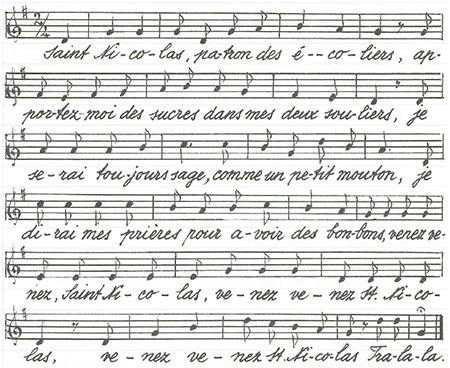 Saint Ni-co-las, pa-tron des é--co-liers, ap-
por-tez moi des sucres dans mes deux sou-liers, je
se-rai tou-jours sage, comme un pe-tit mouton, je
di-rai mes prières pour a-voir des bon-bons, venez ve-
nez, Saint Ni-co-las, ve-nez ve-nez St. Ni-co-
las, ve-nez ve-nez St. Ni-co-las Tra-la-la.